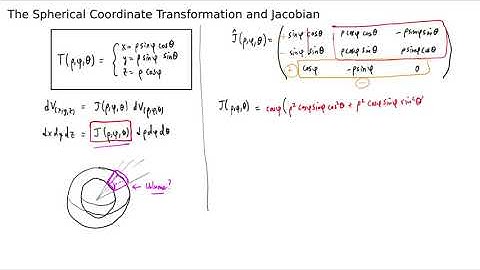 The Spherical Coordinate Transformation and Jacobian
T(ρ,φ,θ) = { x = ρ sinφ cosθ
y = ρ sinφ sinθ
z = ρ cosφ
dV(x,y,z) = J(ρ,φ,θ) dV(ρ,φ,θ)
dx dy dz = J(ρ,φ,θ) dρ dφ dθ
← Volume?
Ĵ(ρ,φ,θ) =
sinφ cosθ ρ cosφ cosθ -ρ sinφ sinθ
sinφ sinθ ρ cosφ sinθ ρ sinφ cosθ
cosφ -ρ sinφ 0
J(ρ,φ,θ) = cosφ (ρ² cosφ sinφ cos²θ + ρ² cosφ sinφ sin²θ